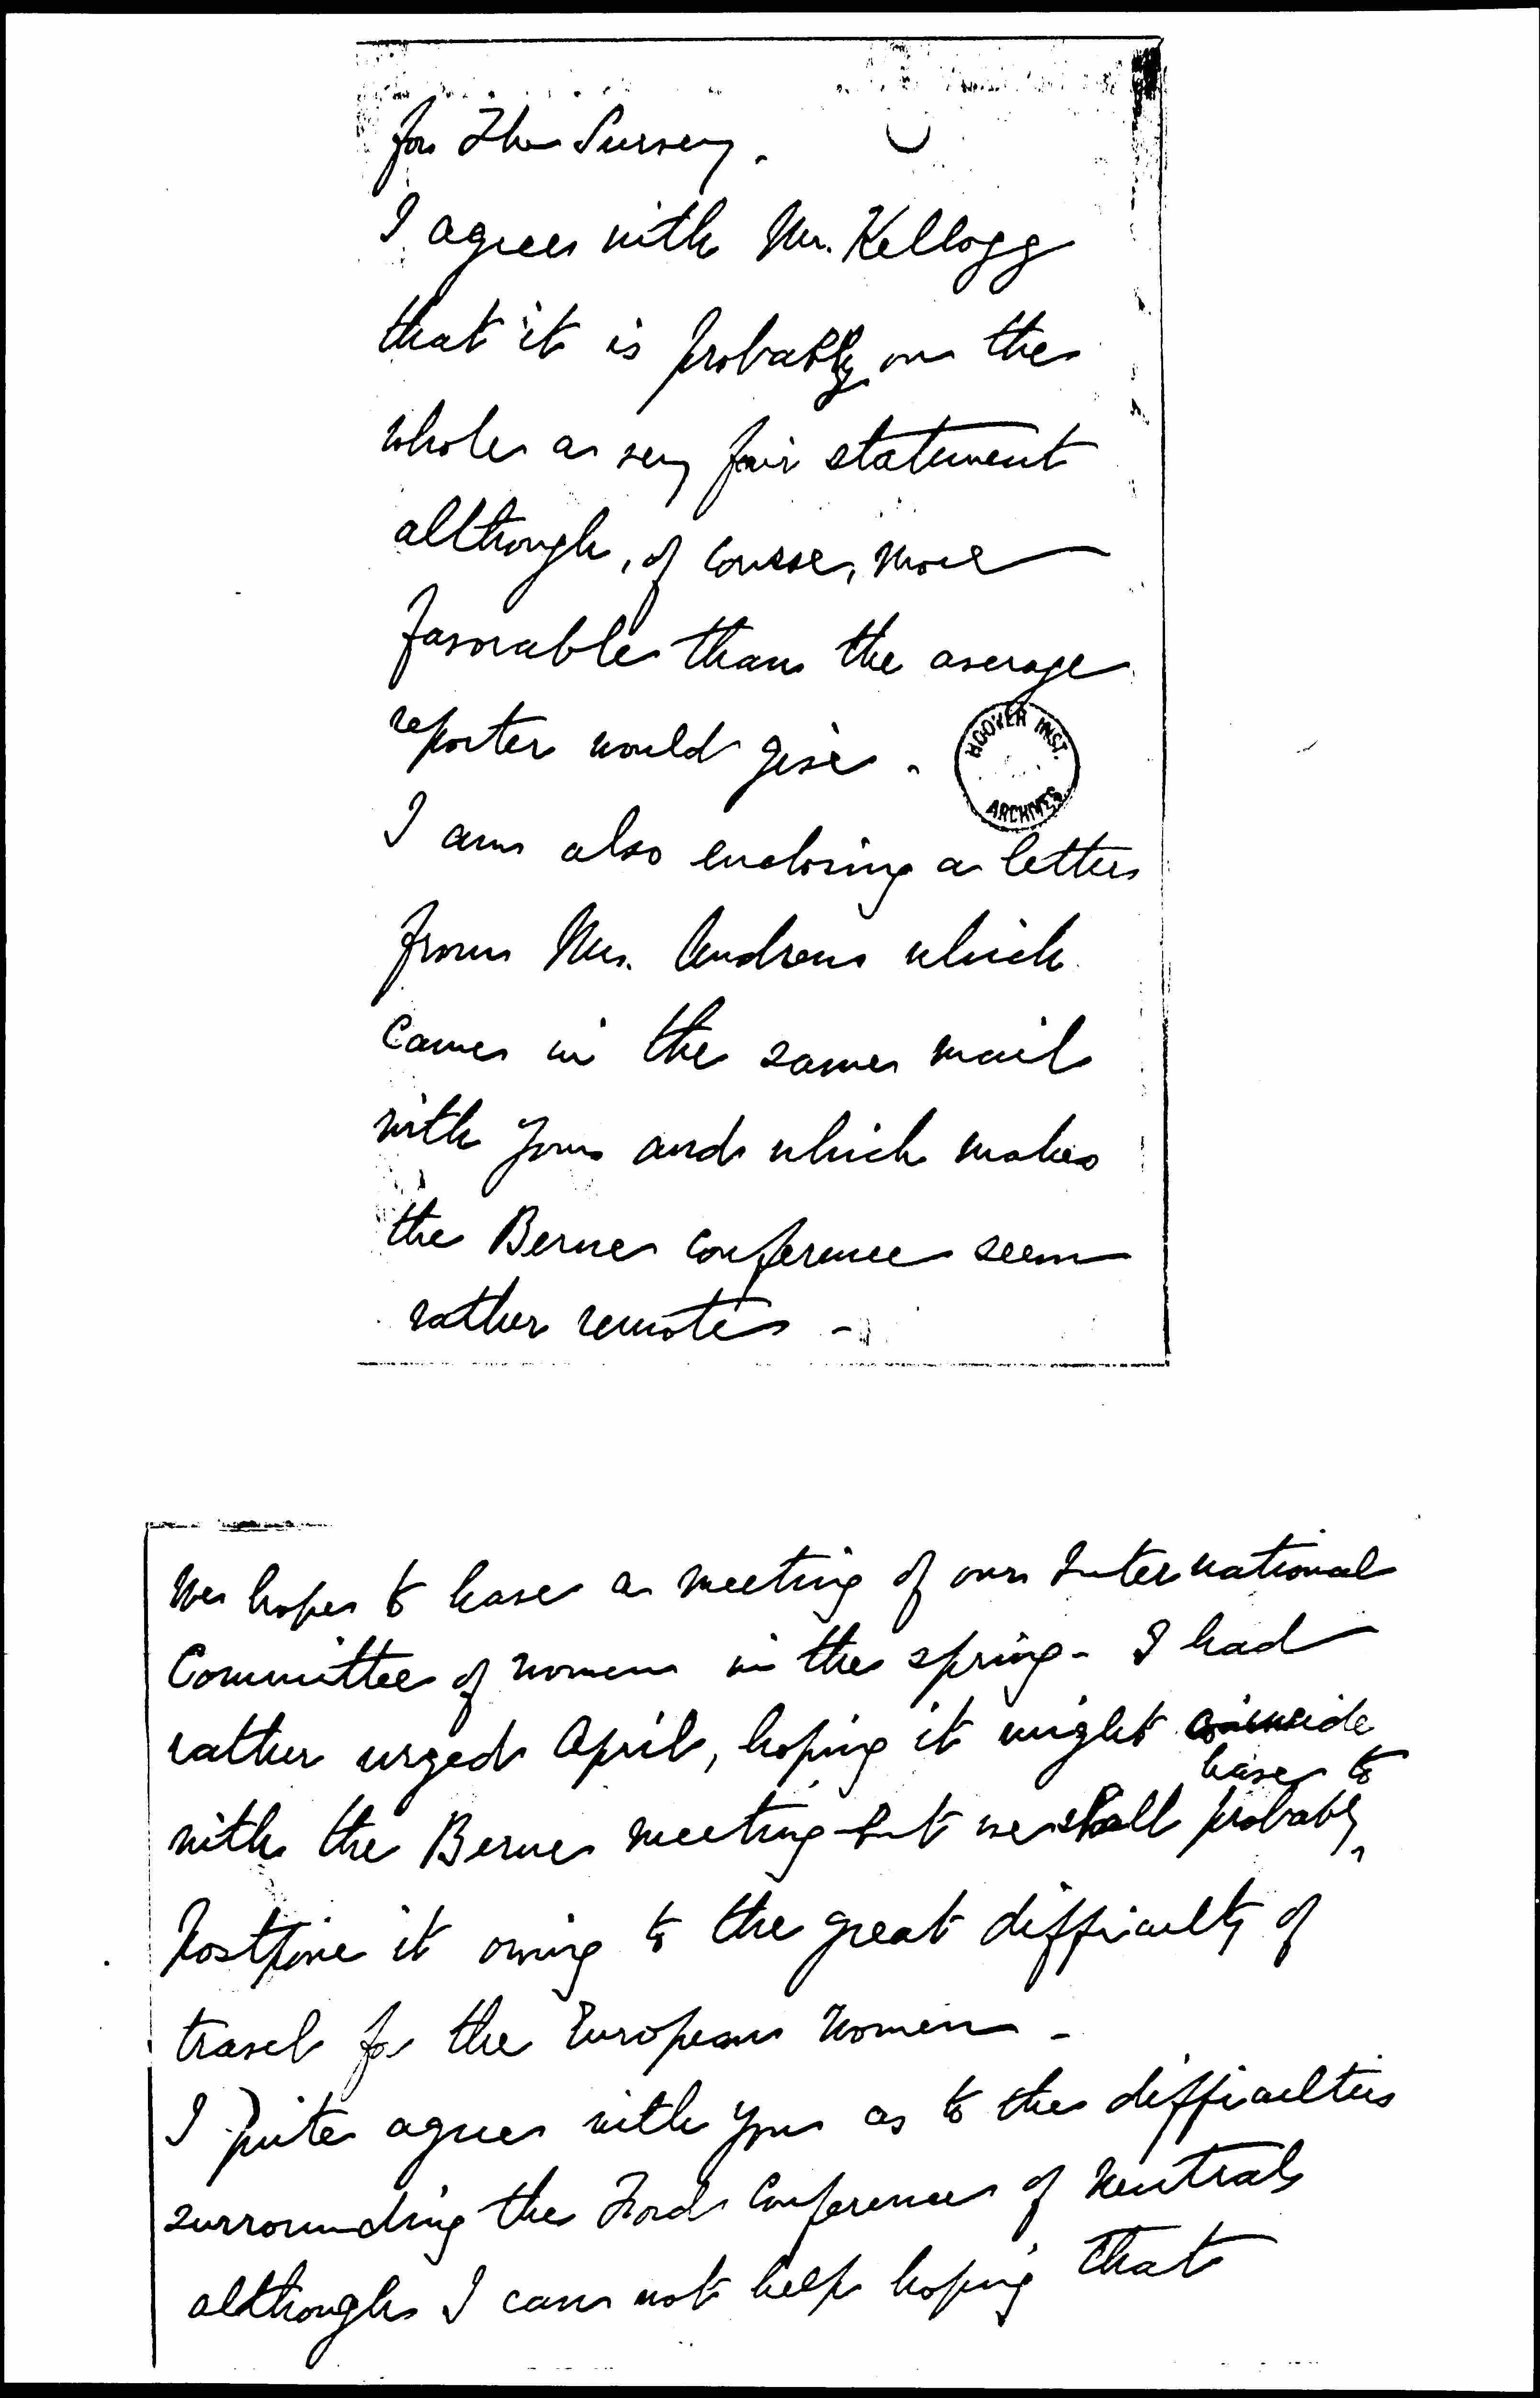 for The Survey.
I agree with Mr. Kellogg
that it is probably on the
whole a very fair statement
although, of course, more
favorable than the average
reporter would give.
HOOVER INST.
ARCHIVES
I am also enclosing a letter
from Mrs. Andrews which
came in the same mail
with yours and which makes
the Berne conference seem
rather remote -
We hope to have a meeting of our International
Committee of women in the spring - I had
rather urged April, hoping it might coincide
have to
with the Berne meeting but we shall probably ^
postpone it owing to the great difficulty of
travel for the European women -
I quite agree with you as to the difficulties
surrounding the Ford Conference of Neutrals
although I can not help hoping that